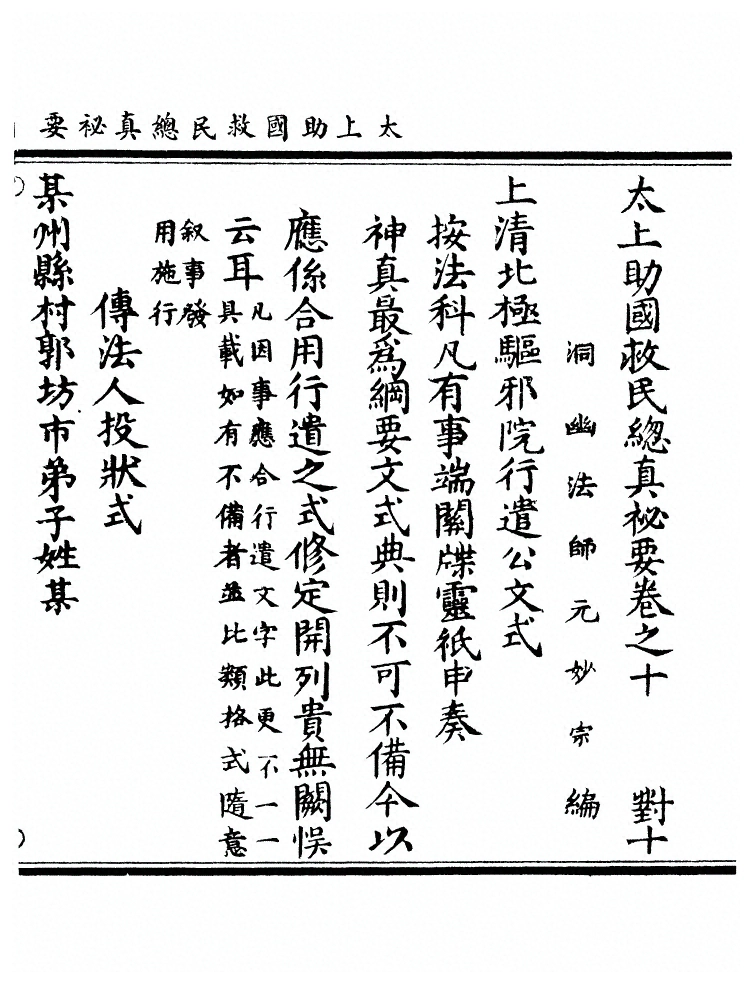 太上助國救民總真祕要
太上助國救民總真祕要卷之十 對十
洞幽法師元妙宗編
上清北極驅邪院行遣公文式
按法科凡有事端關牒靈祇申奏
神真最為綱要文式典則不可不備今以
應係合用行遣之式修定開列貴無闕悞
云耳凡因事應合行遣文字此更不一一
具載如有不備者並比類格式隨意
叙事發
用施行
傳法人投狀式
某州縣村郭坊市弟子姓某